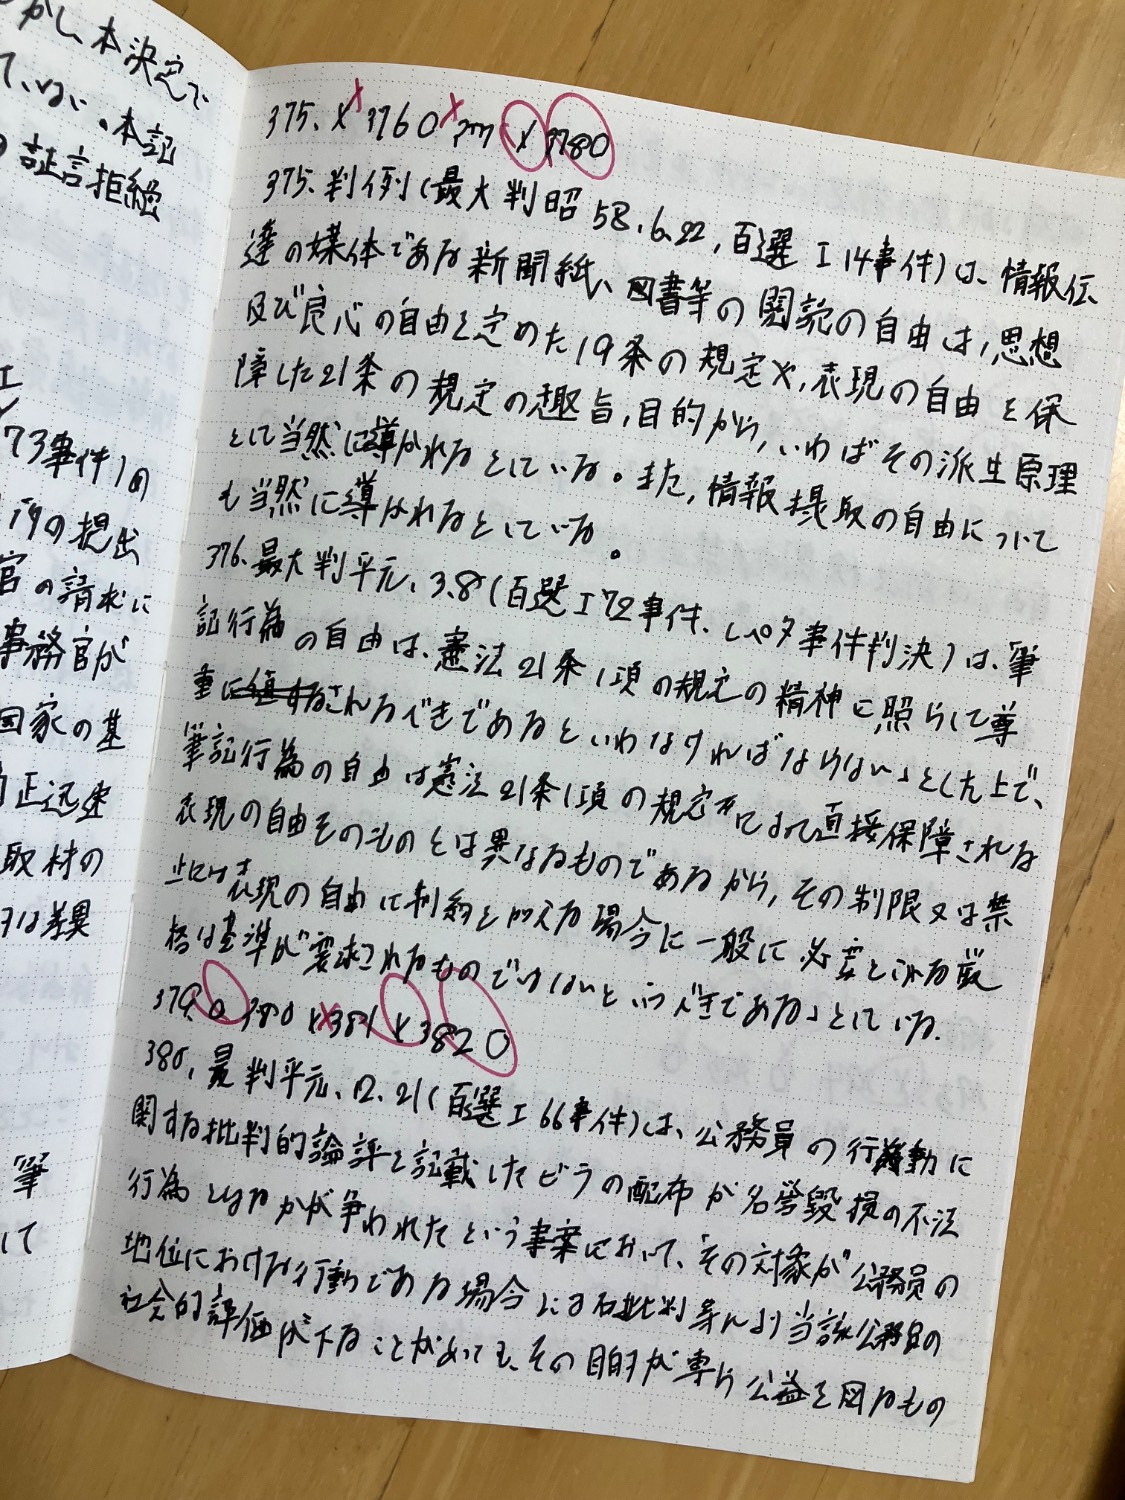 かし、本決定で
ていない。本記
証言拒絶
73事件)の
所の提出
官の請求に
事務官が
国家の基
正迅速
取材の
は差異
筆
して
375. × 376 ○ 377 × 378 ○
375. 判例(最大判昭58.6.22, 百選Ⅰ14事件)は、情報伝
達の媒体である新聞紙、図書等の閲読の自由は、思想
及び良心の自由を定めた19条の規定や、表現の自由を保
障した21条の規定の趣旨、目的から、いわばその派生原理
として当然に導かれるとしている。また、情報摂取の自由について
も当然に導かれるとしている。
376. 最大判平元.3.8(百選Ⅰ72事件、レペタ事件判決)は、「筆
記行為の自由は、憲法21条1項の規定の精神に照らして尊
重されるべきであるといわなければならない」とした上で、
筆記行為の自由は憲法21条1項の規定によって直接保障される
表現の自由そのものとは異なるものであるから、その制限又は禁
止には表現の自由に制約を加える場合に一般に必要とされる厳
格な基準が要求されるものではないというべきである」としている。
379. ○ 380 × 381 × 382 ○
380. 最判平元.12.21(百選Ⅰ66事件)は、公務員の行動に
関する批判的論評を記載したビラの配布が名誉毀損の不法
行為となるかが争われたという事案において、「その対象が公務員の
地位における行動である場合には右批判等により当該公務員の
社会的評価が下ることがあっても、その目的が専ら公益を図るもの